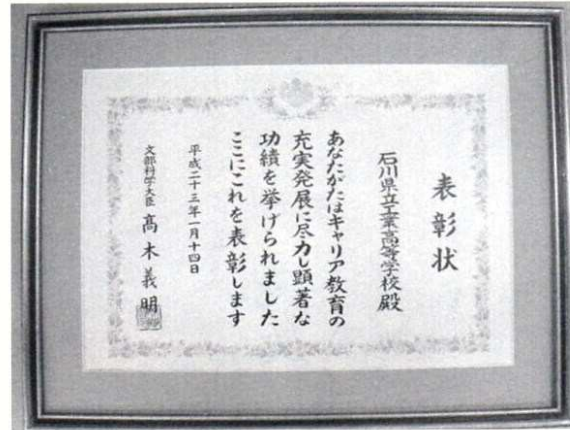 表彰状
石川県立工業高等学校殿
あなたがたはキャリア教育の
充実発展に尽力し顕著な
功績を挙げられました
ここにこれを表彰します
平成二十三年一月十四日
文部科学大臣 髙木義明